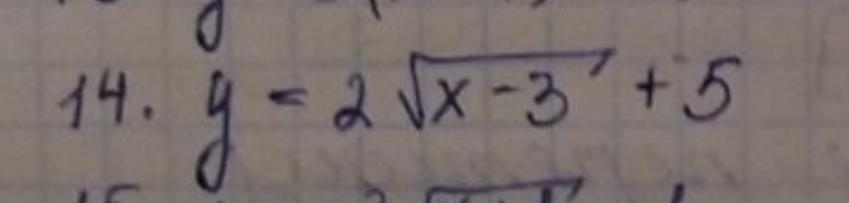 14. y = 2 √(x - 3) + 5